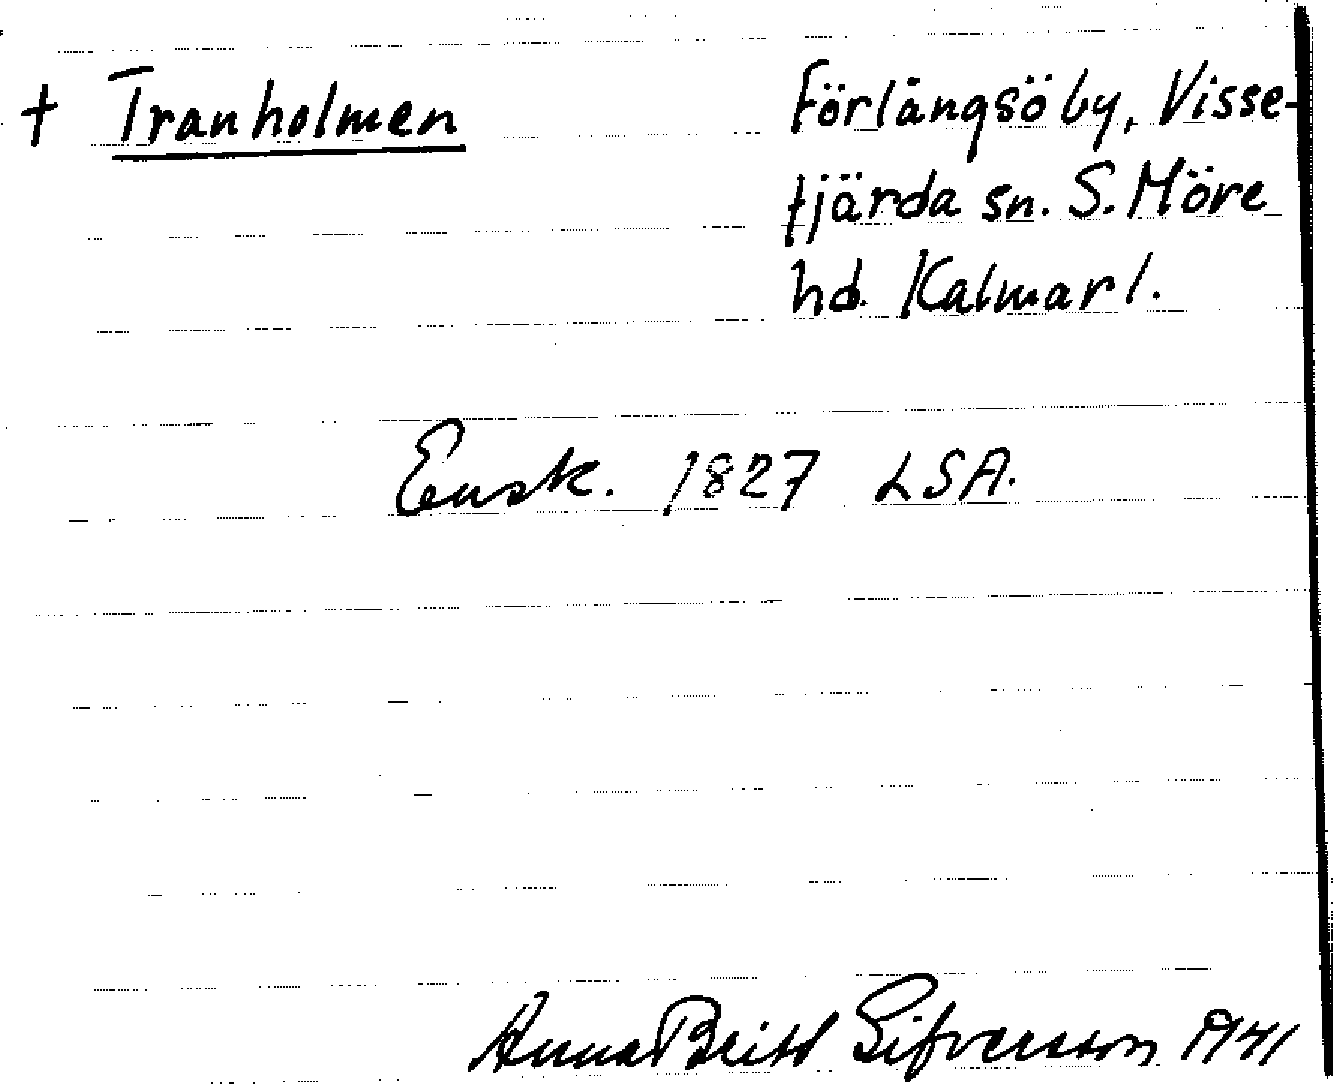 † Tranholmen
Förlångsö by, Visse-
fjärda sn. S. Möre
hd. Kalmar l.
Ensk. 1827 LSA.
Anna Britt Sifversson 1941